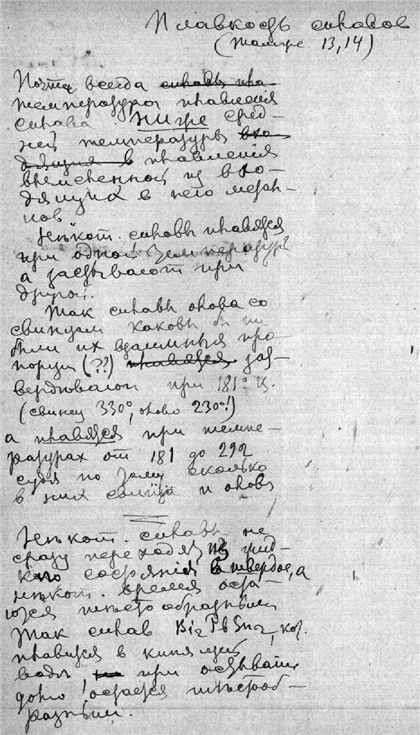 Плавкость сплавов
(также 13, 14)
Почти всегда сплавы пла
температура плавления
сплава ниже сред-
ней температуры вхо
дящих в плавления
вычисленной из вхо-
дящих в него метал-
лов.
Некот. сплавы плавятся
при одной температуре
а застывают при
другой.
Так сплавы олова со
свинцом каковы б ни
были их взаимныя про-
порции (??) плавятся зат-
вердевают при 181° Ц.
(свинец 330°, олово 230°!)
а плавятся при темпе-
ратурах от 181 до 292
судя по тому сколько
в них свинца и олова
Некот. сплавы не
сразу переходят из жид-
каго состояния в твердое, а
некот. время оста-
ются тестообразными
Так сплав Bi2 Pb Sn2, кот.
плавится в кипящей
воде, при остывании
долго остается тестооб-
разным.